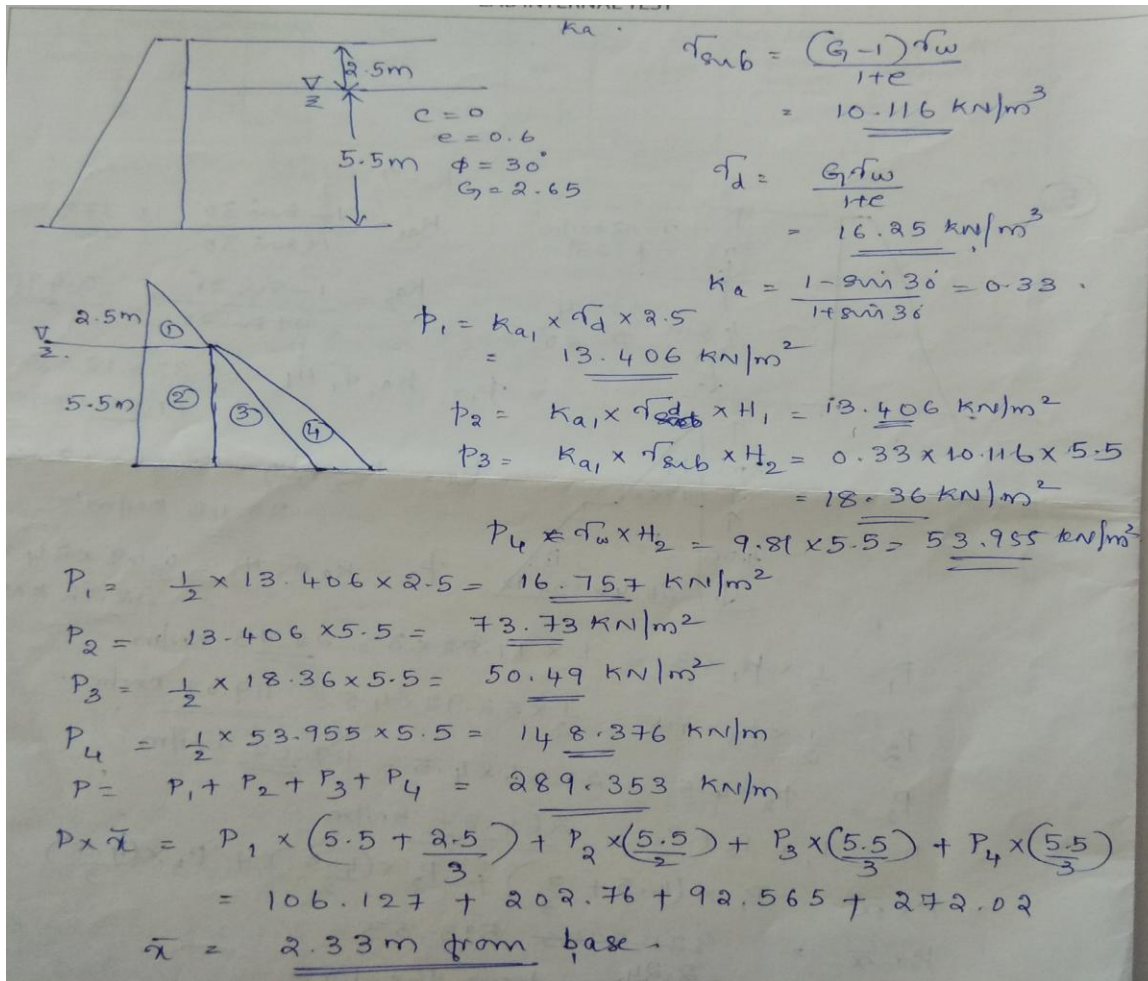 LAB INTERNAL TEST
Ka .
2.5m
5.5m
c = 0
e = 0.6
ϕ = 30°
G = 2.65
γsub = (G-1)γw / 1+e
= 10.116 KN/m³
γd = Gγw / 1+e
= 16.25 KN/m³
Ka = 1-sin 30° / 1+sin 30° = 0.33 .
2.5m
5.5m
①
②
③
④
p₁ = Ka₁ × γd × 2.5
= 13.406 KN/m²
p₂ = Ka₁ × γd × H₁ = 13.406 KN/m²
p₃ = Ka₁ × γsub × H₂ = 0.33 × 10.116 × 5.5
= 18.36 KN/m²
p₄ = γw × H₂ = 9.81 × 5.5 = 53.955 KN/m²
P₁ = 1/2 × 13.406 × 2.5 = 16.757 KN/m²
P₂ = 13.406 × 5.5 = 73.73 KN/m²
P₃ = 1/2 × 18.36 × 5.5 = 50.49 KN/m²
P₄ = 1/2 × 53.955 × 5.5 = 148.376 KN/m
P = P₁ + P₂ + P₃ + P₄ = 289.353 KN/m
P × x̄ = P₁ × (5.5 + 2.5/3) + P₂ × (5.5/2) + P₃ × (5.5/3) + P₄ × (5.5/3)
= 106.127 + 202.76 + 92.565 + 272.02
x̄ = 2.33m from base .